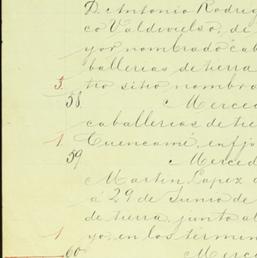 D. Antonio Rodrig
co Valdivielso, de
yor nombrado cab
ballerias de tierra
3. tio sitio nombra
58 Merced
caballerias de tie
1 Cuencamé, en fj
59 Merced
Martin Lopez d
a 29 de Junio de
de tierra, junto al
1 yo, en los términ
60 Merc